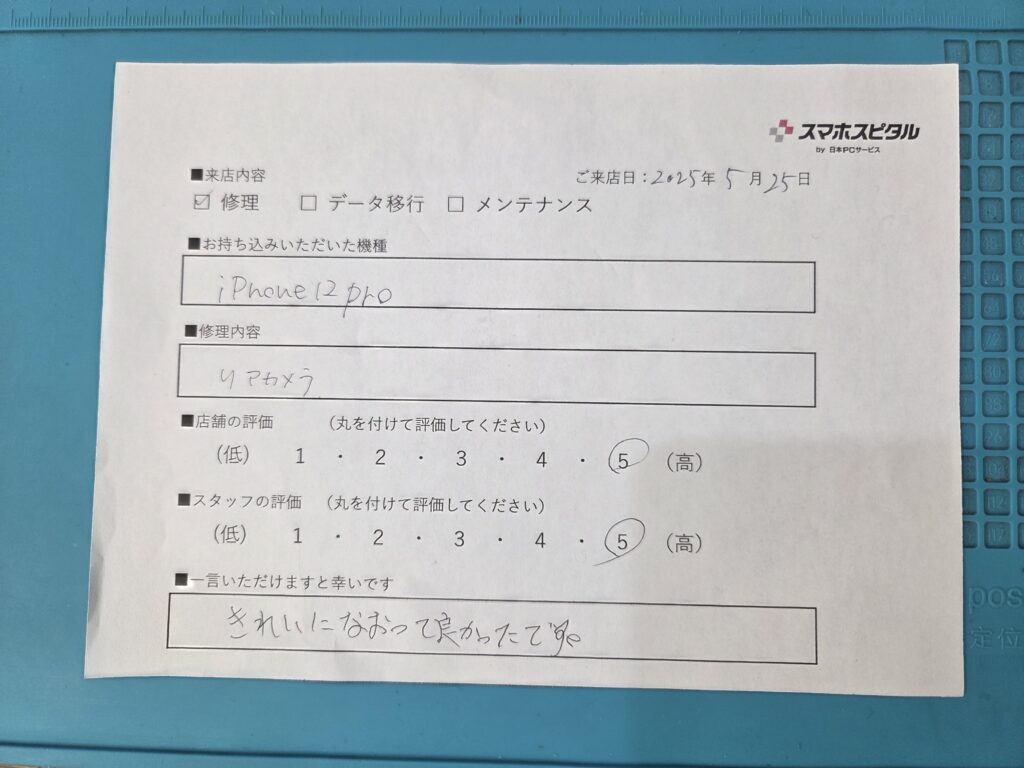 スマホスピタル
by 日本PCサービス
■来店内容
ご来店日:2025年 5月25日
☑ 修理 □ データ移行 □ メンテナンス
■お持ち込みいただいた機種
iPhone12pro
■修理内容
リアカメラ
■店舗の評価 (丸を付けて評価してください)
(低) 1 ・ 2 ・ 3 ・ 4 ・ 5 (高)
■スタッフの評価 (丸を付けて評価してください)
(低) 1 ・ 2 ・ 3 ・ 4 ・ 5 (高)
■一言いただけますと幸いです
きれいになおって良かったです。
pos
定位